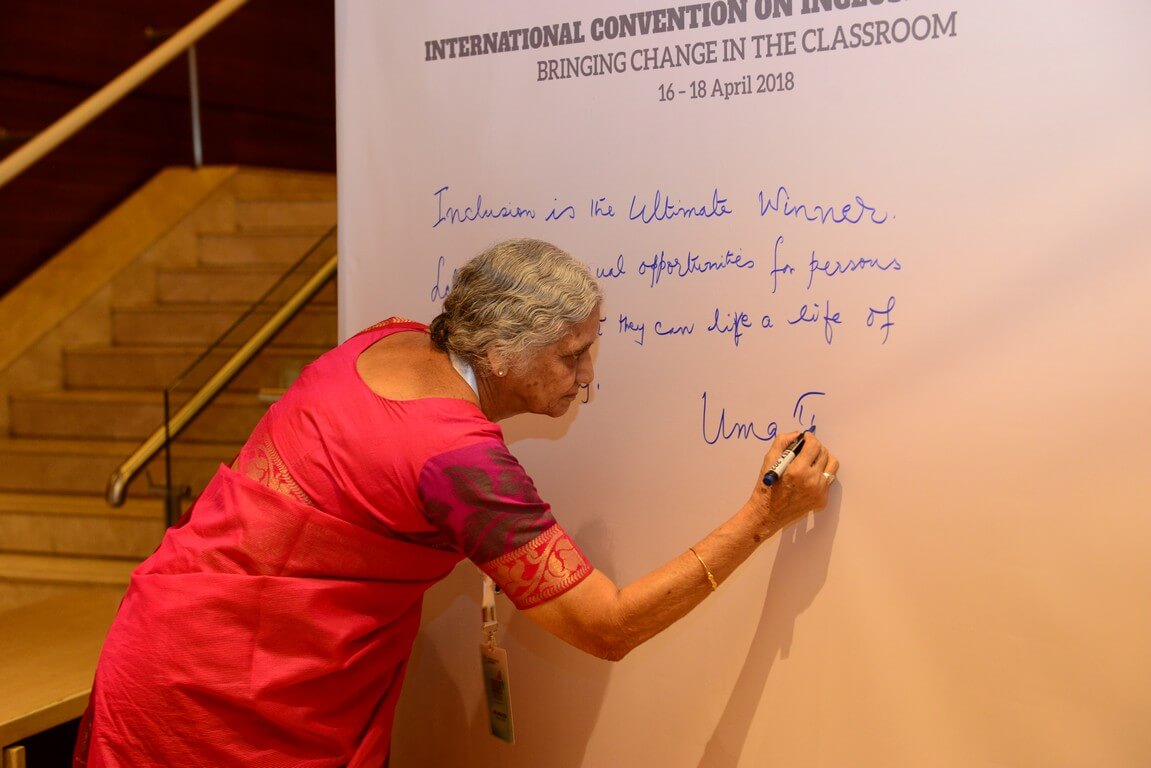 INTERNATIONAL CONVENTION ON
BRINGING CHANGE IN THE CLASSROOM
16 - 18 April 2018
Inclusion is the Ultimate Winner.
opportunities for persons
they can life a life of
Uma